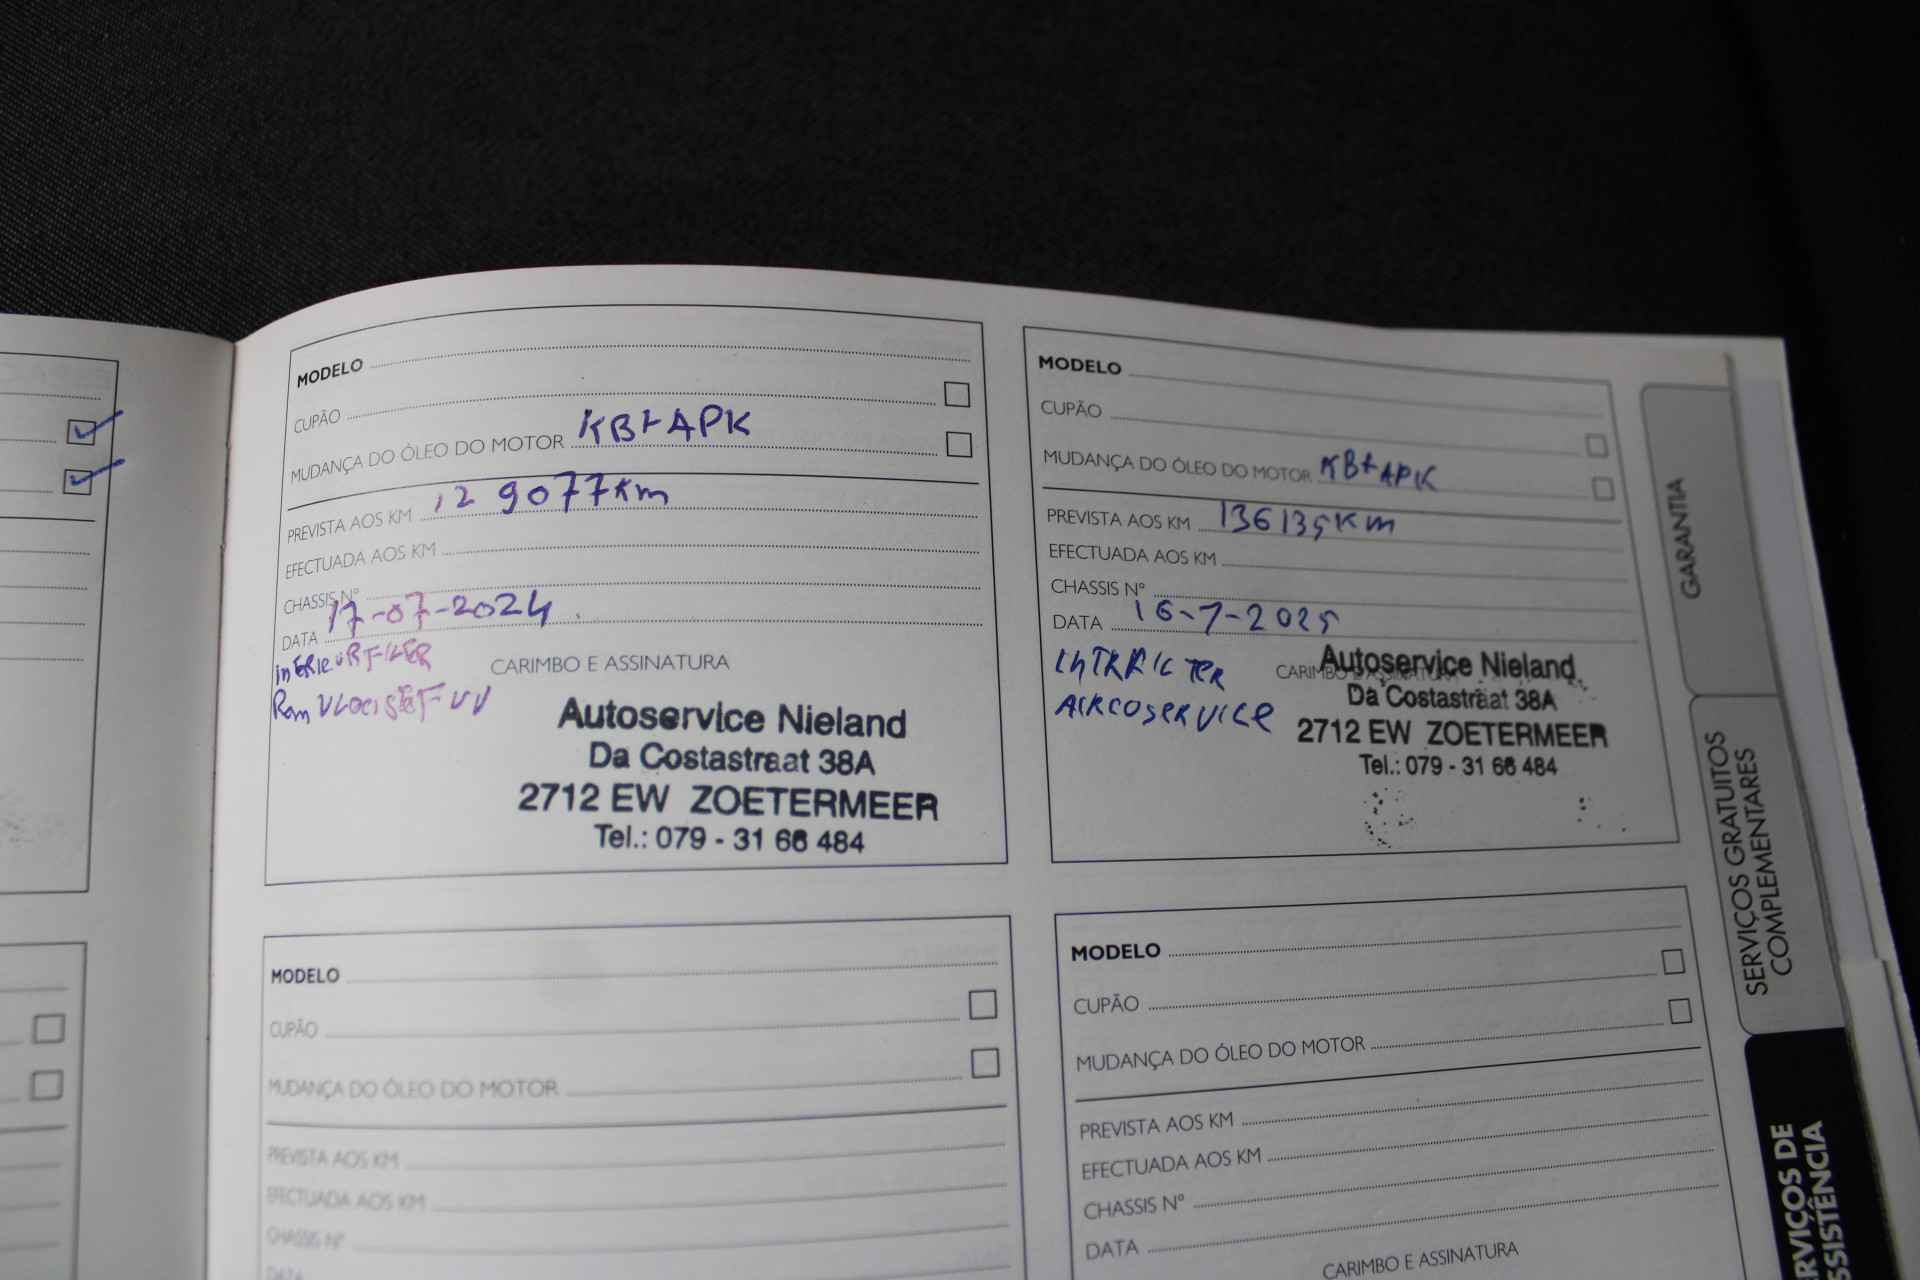 MODELO
CUPÃO
MUDANÇA DO ÓLEO DO MOTOR KB+APK
PREVISTA AOS KM 129077Km
EFECTUADA AOS KM
CHASSIS Nº
DATA 17-07-2024
CARIMBO E ASSINATURA
Autoservice Nieland
Da Costastraat 38A
2712 EW ZOETERMEER
Tel.: 079 - 31 66 484
MODELO
CUPÃO
MUDANÇA DO ÓLEO DO MOTOR KB+APK
PREVISTA AOS KM 136135Km
EFECTUADA AOS KM
CHASSIS Nº
DATA 16-7-2025
AIRCOSERVICE
Autoservice Nieland
Da Costastraat 38A
2712 EW ZOETERMEER
Tel.: 079 - 31 66 484
MODELO
CUPÃO
MUDANÇA DO ÓLEO DO MOTOR
PREVISTA AOS KM
EFECTUADA AOS KM
CHASSIS Nº
DATA
MODELO
CUPÃO
MUDANÇA DO ÓLEO DO MOTOR
PREVISTA AOS KM
EFECTUADA AOS KM
CHASSIS Nº
DATA
CARIMBO E ASSINATURA
GARANTIA
SERVIÇOS GRATUITOS
COMPLEMENTARES